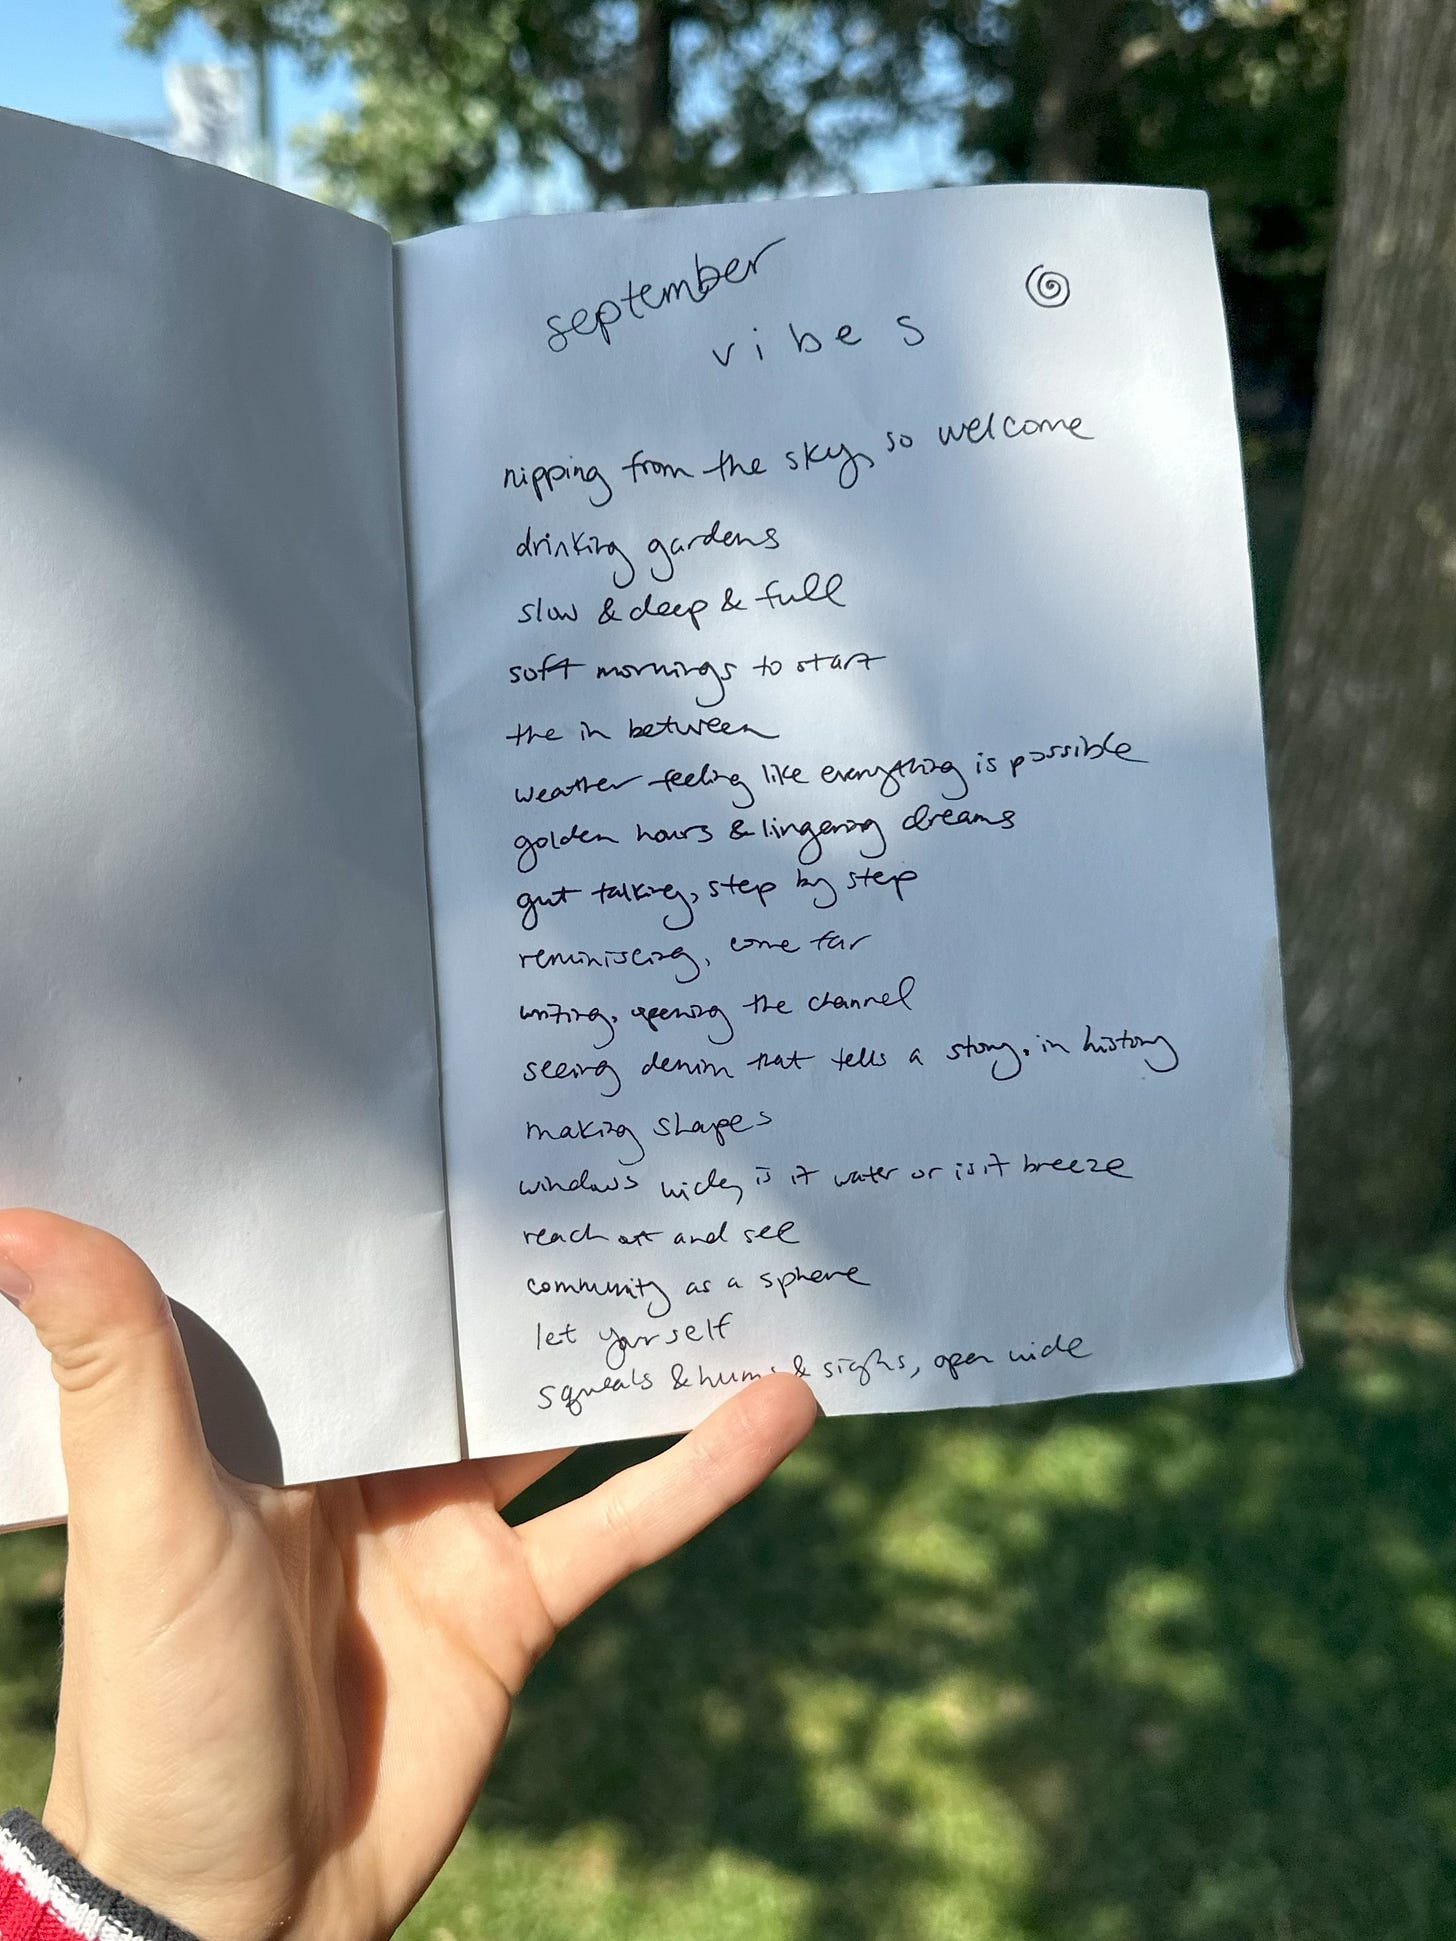 september
vibes
nipping from the sky, so welcome
drinking gardens
slow & deep & full
soft mornings to start
the in between
weather feeling like everything is possible
golden hours & lingering dreams
gut talking, step by step
reminiscing, come far
writing, opening the channel
seeing denim that tells a story, in history
making shapes
windows wide, is it water or is it breeze
reach out and see
community as a sphere
let yourself
squeals & hums & sighs, open wide